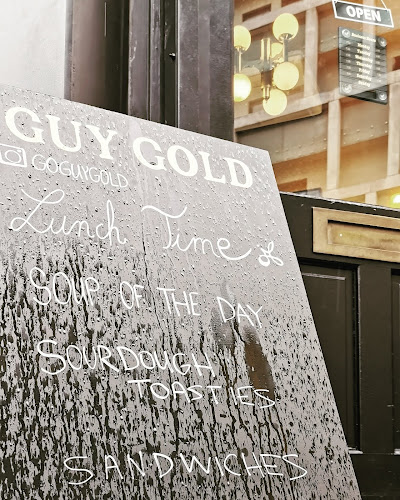 OPEN
GUY GOLD
GOGUYGOLD
Lunch Time
SOUP OF THE DAY
SOURDOUGH
TOASTIES
SANDWICHES